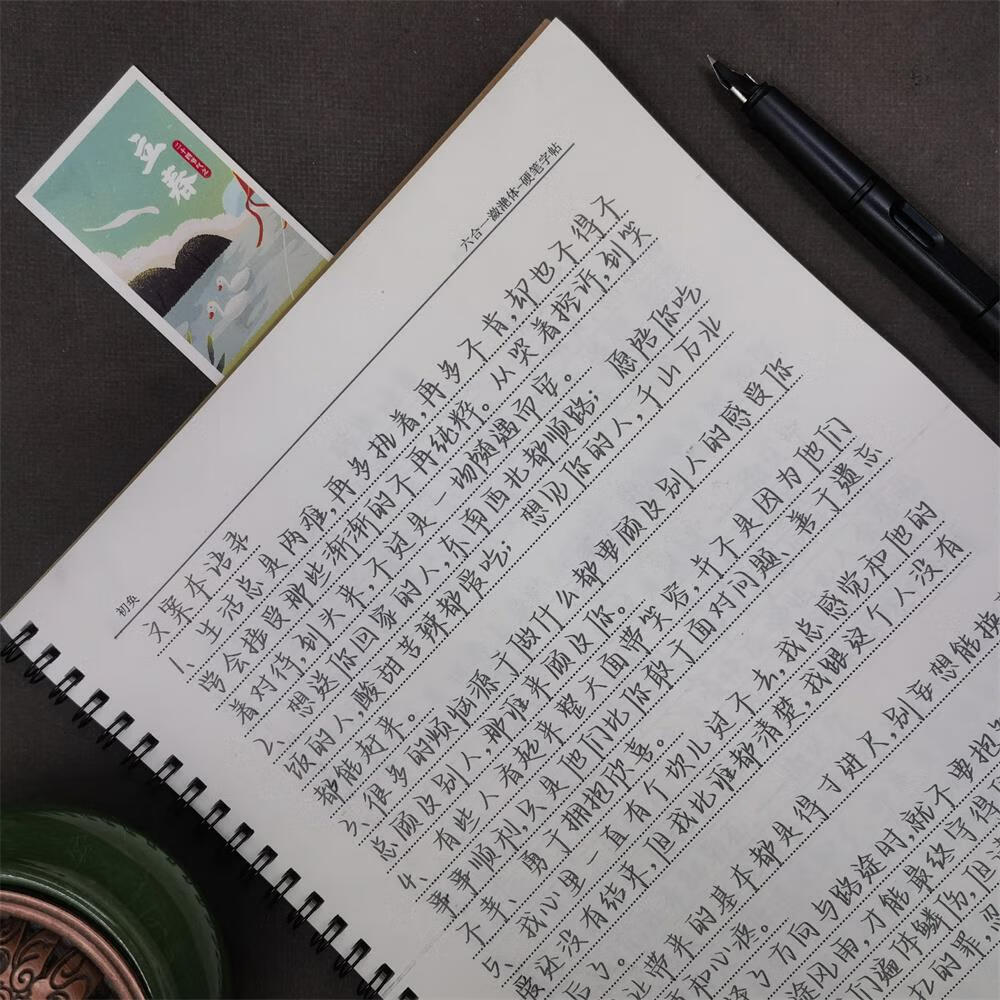 立春
二十四节气之
六合一潋滟体-硬笔字帖
初奂
文案本语录
1、生活总是两难,再多执着,再多不肯,却也不得不
学会接受那些渐渐的不再纯粹。从哭着控诉,到笑
着对待,到头来,不过是一场随遇而安。
2、想送你回家的人,东南西北都顺路;愿陪你吃
饭的人,酸甜苦辣都爱吃;想见你的人,千山万水
都能赶来。
3、很多的烦恼源于做什么都要顾及别人的感受你
总顾及别人,那谁来顾及你。
4、有些人看起来整天面带笑容,并不是因为他们
事事顺利,只是他们比你敢于面对问题、善于遗忘
不幸、勇于拥抱欣喜。
5、我心里一直有个坎儿过不去,我总感觉和他的
爱还没有结束,但我比谁都清楚,我跟这个人没有
后了。
让带来的基本都是得寸进尺,别妄想能换
和心疼。
择了方向与路途时,就不要抱
途风雨,才能最终守得
们遍体鳞伤,但
的罪,